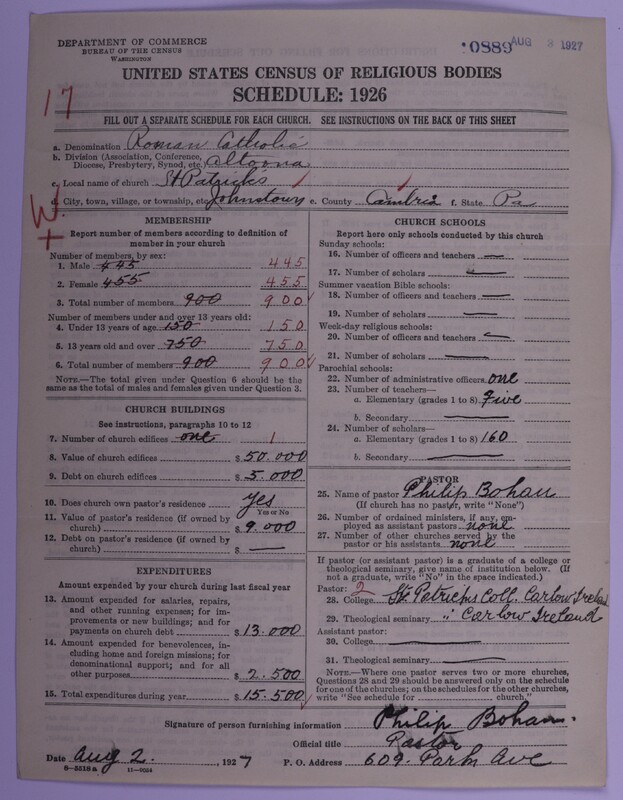 DEPARTMENT OF COMMERCE
BUREAU OF THE CENSUS
WASHINGTON
:0889 AUG 8 1927
UNITED STATES CENSUS OF RELIGIOUS BODIES
SCHEDULE: 1926
17
FILL OUT A SEPARATE SCHEDULE FOR EACH CHURCH. SEE INSTRUCTIONS ON THE BACK OF THIS SHEET
a. Denomination Roman Catholic
b. Division (Association, Conference, Diocese, Presbytery, Synod, etc.) Altoona
c. Local name of church St Patrick's
d. City, town, village, or township, etc. Johnstown e. County Cambria f. State Pa
W
MEMBERSHIP
Report number of members according to definition of
member in your church
Number of members, by sex:
1. Male 445 445
2. Female 455 455
3. Total number of members 900 900
Number of members under and over 13 years old:
4. Under 13 years of age 150 150
5. 13 years old and over 750 750
6. Total number of members 900 900
NOTE.—The total given under Question 6 should be the
same as the total of males and females given under Question 3.
CHURCH BUILDINGS
See instructions, paragraphs 10 to 12
7. Number of church edifices one 1
8. Value of church edifices $ 50.000
9. Debt on church edifices $ 5.000
10. Does church own pastor's residence yes
Yes or No
11. Value of pastor's residence (if owned by
church) $ 9.000
12. Debt on pastor's residence (if owned by
church) $ —
EXPENDITURES
Amount expended by your church during last fiscal year
13. Amount expended for salaries, repairs,
and other running expenses; for im-
provements or new buildings; and for
payments on church debt $ 13.000
14. Amount expended for benevolences, in-
cluding home and foreign missions; for
denominational support; and for all
other purposes $ 2.500
15. Total expenditures during year $ 15.500
CHURCH SCHOOLS
Report here only schools conducted by this church
Sunday schools:
16. Number of officers and teachers —
17. Number of scholars —
Summer vacation Bible schools:
18. Number of officers and teachers —
19. Number of scholars —
Week-day religious schools:
20. Number of officers and teachers —
21. Number of scholars —
Parochial schools:
22. Number of administrative officers one
23. Number of teachers—
a. Elementary (grades 1 to 8) Five
b. Secondary —
24. Number of scholars—
a. Elementary (grades 1 to 8) 160
b. Secondary —
PASTOR
25. Name of pastor Philip Bohan
(If church has no pastor, write "None")
26. Number of ordained ministers, if any, em-
ployed as assistant pastors none
27. Number of other churches served by the
pastor or his assistants none
If pastor (or assistant pastor) is a graduate of a college or
theological seminary, give name of institution below. (If
not a graduate, write "No" in the space indicated.)
Pastor: 2
28. College St. Patricks Coll. Carlow Ireland
29. Theological seminary " Carlow Ireland
Assistant pastor:
30. College —
31. Theological seminary —
NOTE.—Where one pastor serves two or more churches,
Questions 28 and 29 should be answered only on the schedule
for one of the churches; on the schedules for the other churches,
write "See schedule for church."
Signature of person furnishing information Philip Bohan.
Official title Pastor
Date Aug 2. , 1927 P. O. Address 609. Park Ave
8—5518a 11—9034